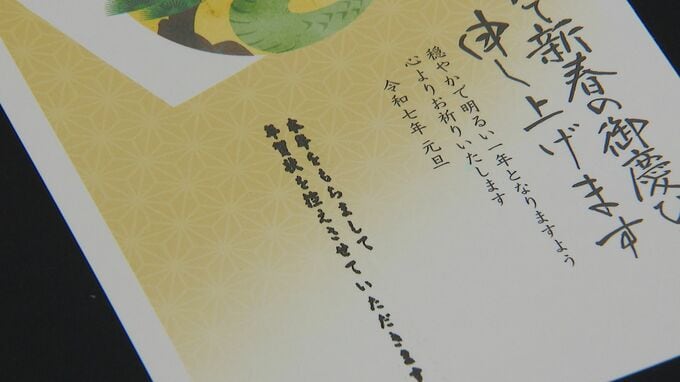 て新春の御慶び
申し上げます
穏やかで明るい一年となりますよう
心よりお祈りいたします
令和七年 元旦
本年をもちまして
年賀状を控えさせていただきます